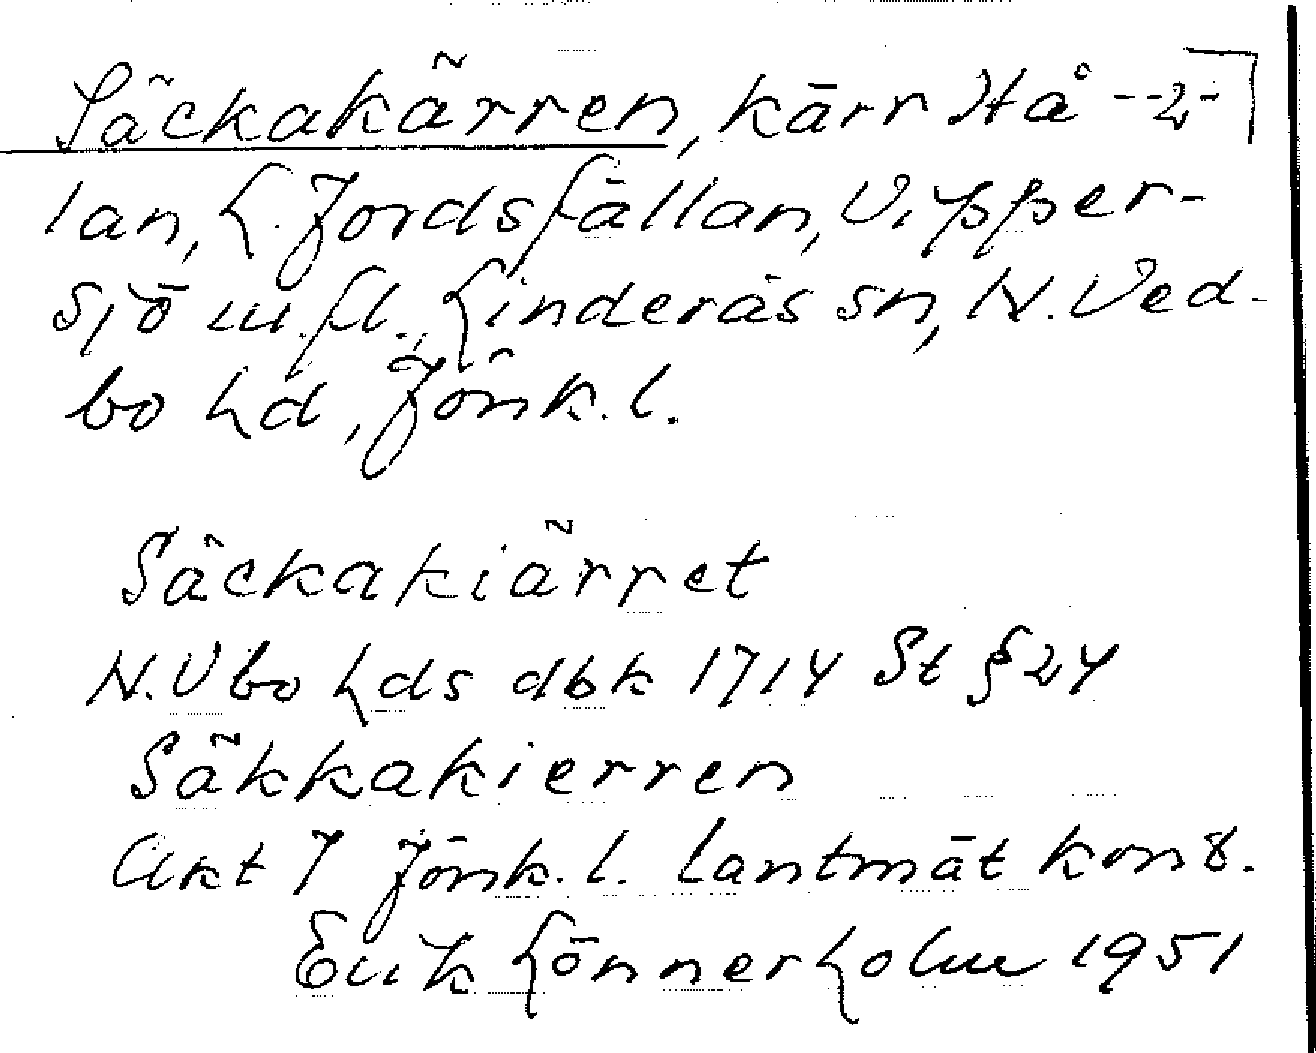 Säckakärren, kärr Hå- -2-
lan, L. Jordsfällan, Vipper-
sjö m.fl., Linderås sn, N. Ved-
bo hd, Jönk. l.
Säckakiärret
N. Vbo hds dbk 1714 St § 24
Säkkakierren
Akt 7 Jönk. l. lantmät kon8.
Erik Lönnerholm 1951